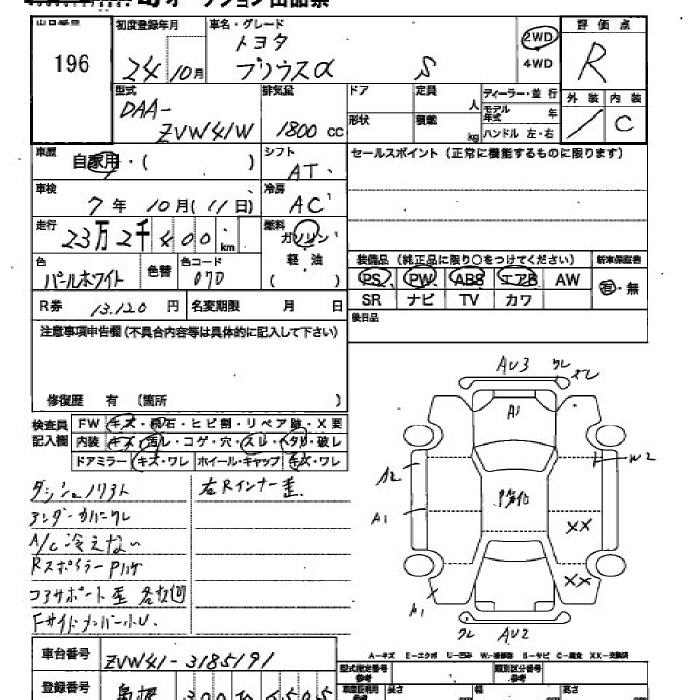 オークション出品票
出品番号 196
初度登録年月 24年10月
車名・グレード トヨタ プリウスα S
2WD
4WD
評価点 R
外装 内装 C
型式 DAA-ZVW41W
排気量 1800 cc
ドア 定員 人
形状 積載 kg
ディーラー・並行
モデル年式 年
ハンドル 左・右
車歴 自家用・( )
シフト AT
セールスポイント(正常に機能するものに限ります)
車検 7年10月(11日)
冷房 AC
走行 23万2千400 km
燃料 ガソリン
軽油
( )
色 パールホワイト 色替 色コード 070
装備品(純正品に限り○をつけてください) 新車保証書
PS PW ABS エアB AW 有・無
SR ナビ TV カワ
R券 13,120 円 名変期限 月 日
後日品
注意事項申告欄(不具合内容等は具体的に記入して下さい)
修復歴 有 (箇所 )
検査員記入欄
FW キズ・飛石・ヒビ割・リペア跡・X要
内装 キズ・汚レ・コゲ・穴・スレ・ヘタリ・破レ
ドアミラー キズ・ワレ ホイール・キャップ キズ・ワレ
ダッシュノリアト
右Rインナー歪
アンダーカバーワレ
A/C冷えない
RスポイラーPハゲ
コアサポート歪
AU3 ワレ
A1
A2
A1
W2
XX
XX
A1
ワレ AU2
A-キズ E-エクボ U-凹み W-補修跡 S-サビ C-腐食 XX-交換済
車台番号 ZVW41-3185191
型式指定番号 類別区分番号
登録番号 島根 300
長さ 幅 高さ